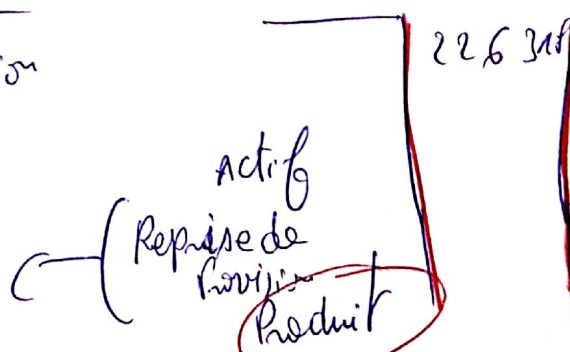 22 6 318
ion
Actif
Reprise de
Provision
Produit